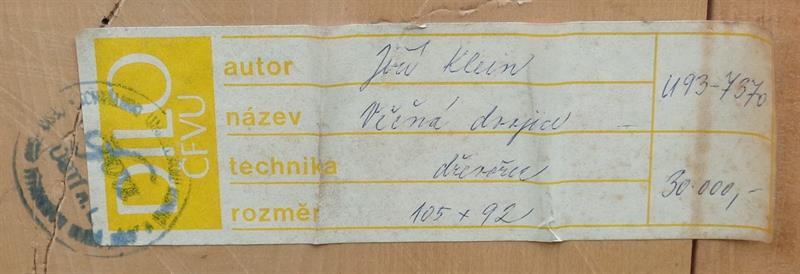 DÍLO ČFVU
autor Jiří Klein
název Věčná dvojice
technika dřevořez
rozměr 105 x 92
U93-7370
30.000,-